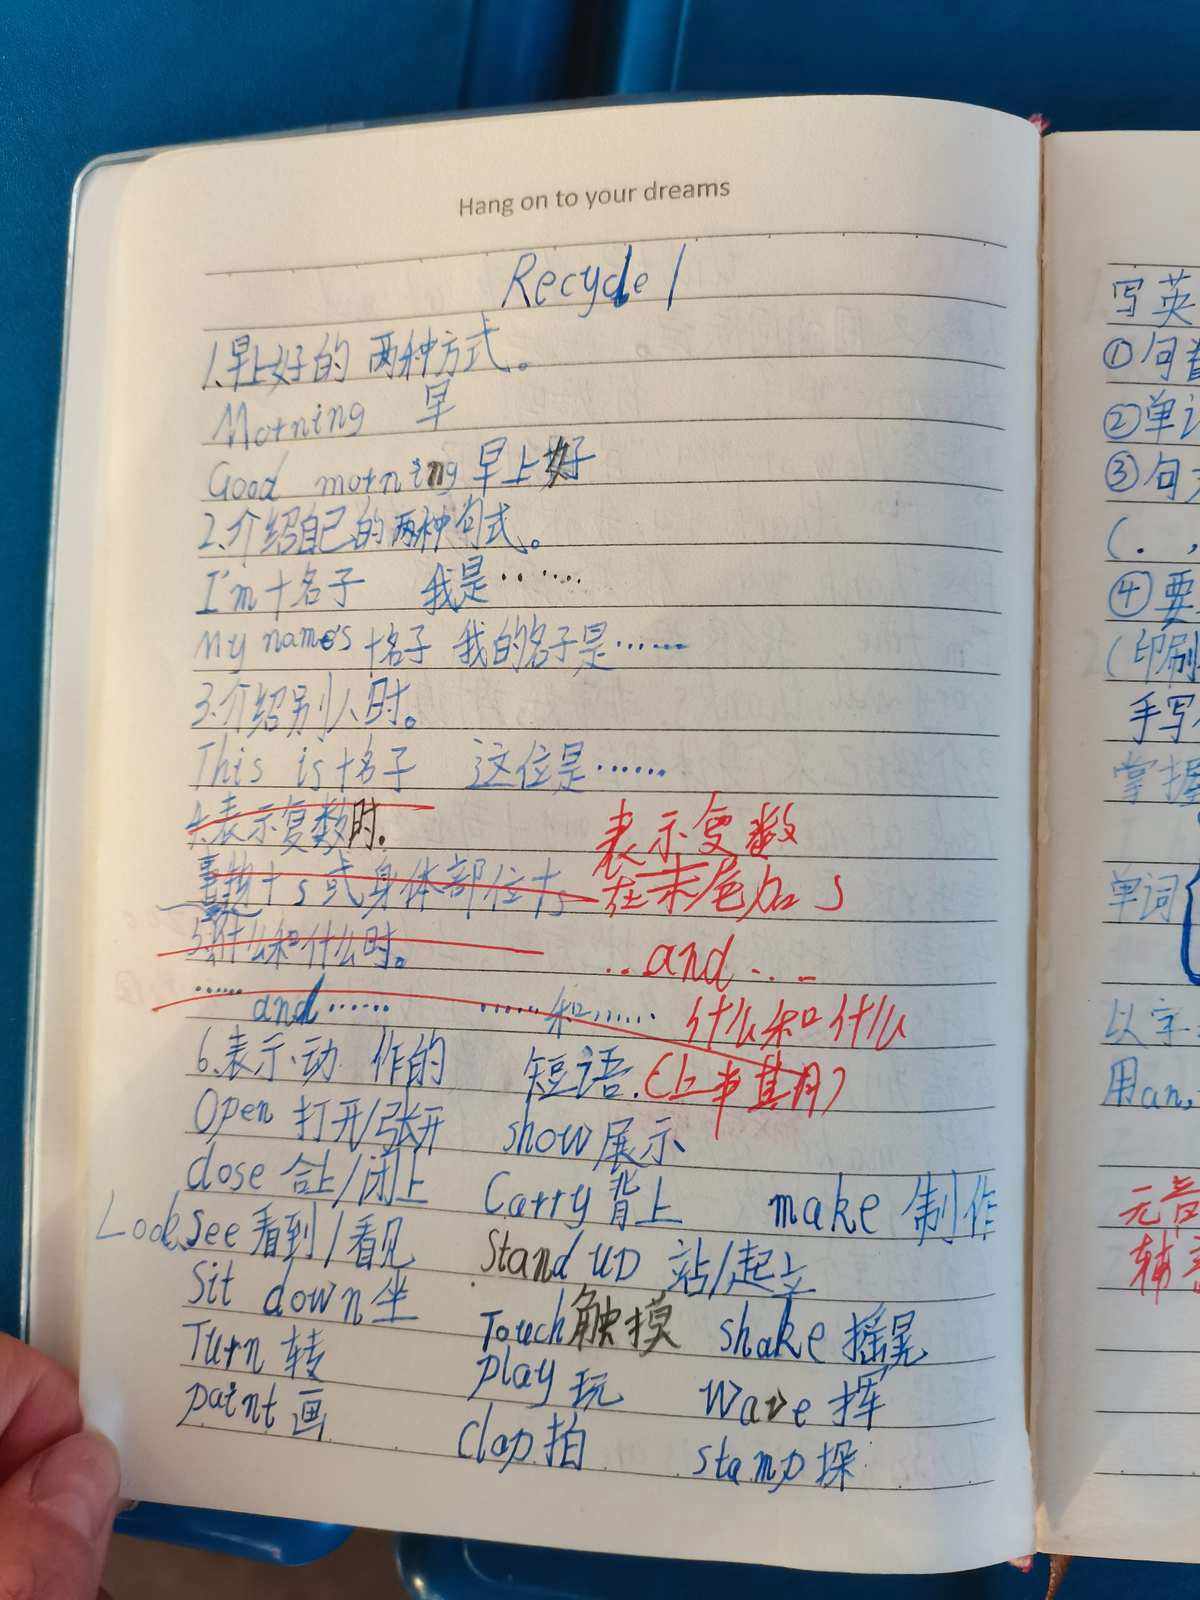 Hang on to your dreams
Recycle 1
1.早上好的 两种方式。
Morning 早
Good morning 早上好
2.介绍自己的两种句式。
I'm+名子 我是……
My name's+名子 我的名子是……
3.介绍别人时。
This is+名子 这位是……
4.表示复数时.
表示复数
喜物+s或身体部位+s
在末尾加s
5.什么和什么时。
..and...
……and…… ……和……
什么和什么
6.表示动 作的 短语.
(上半其月)
Open 打开/张开 show 展示
close 合上/闭上 Carry 背上 make 制作
Look see 看到/看见 Stand up 站/起立
Sit down 坐 Touch 触摸 shake 摇晃
Turn 转 play 玩 Wave 挥
paint 画 Clap 拍 stamp 跺
写英
①句首
②单词
③句
(. ,
④要
(印刷
手写
掌握
单词
以字
用an,
元音
辅音